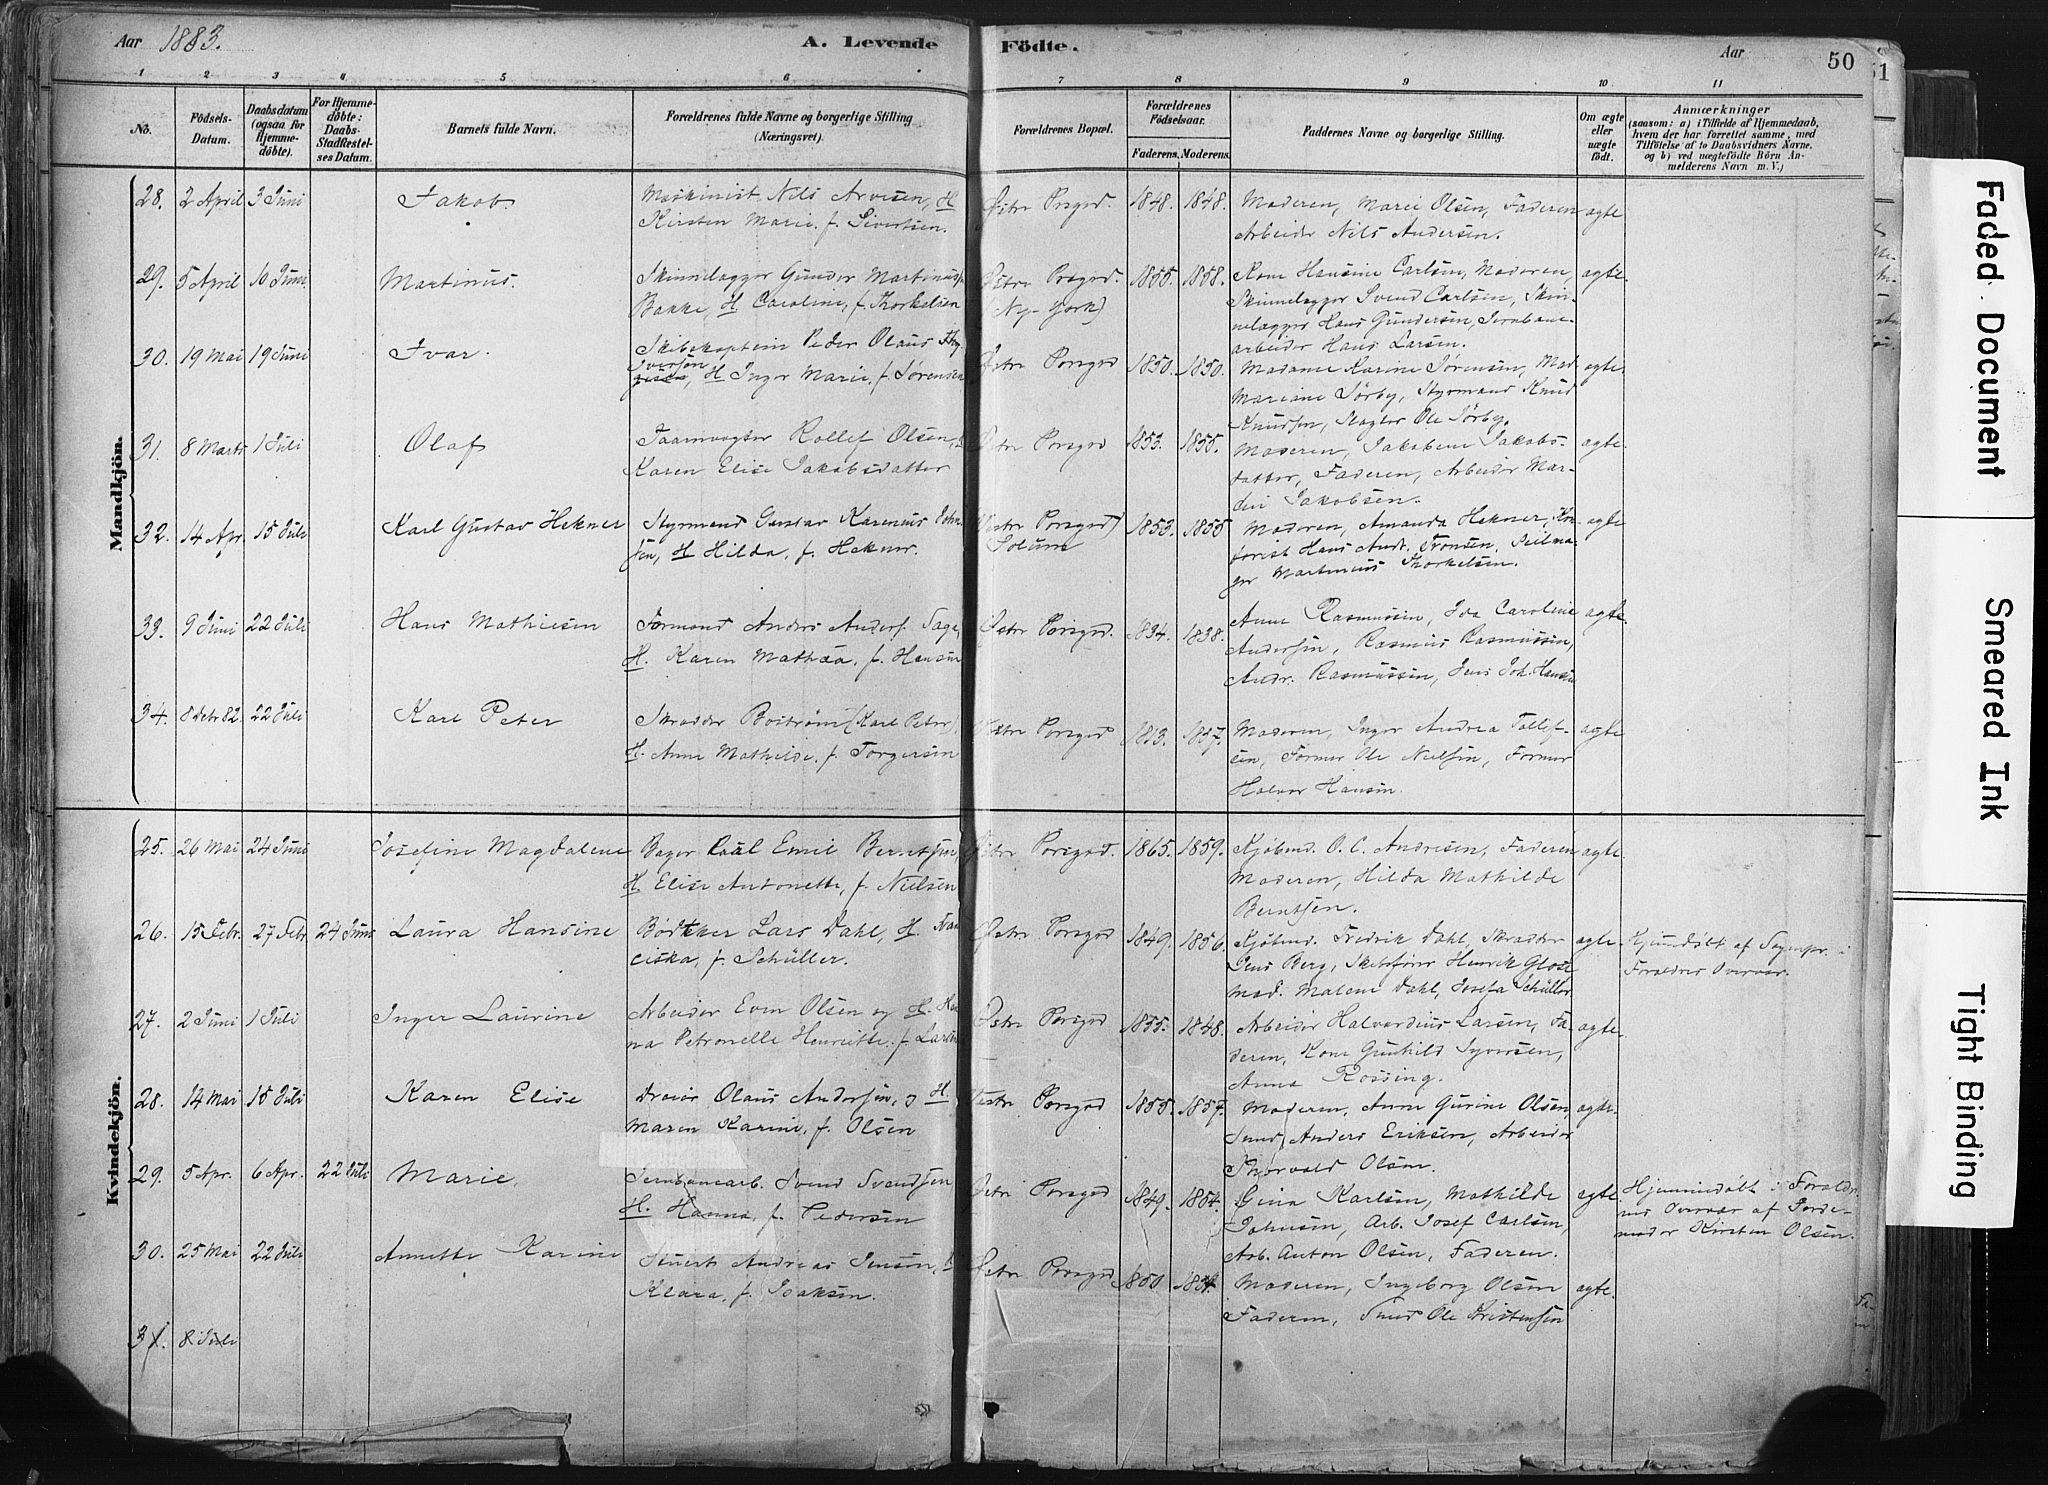 Aar 1883.
A. Levende Födte.
Aar
50
51
1 2 3 4 5 6 7 8 9 10 11
No.
Födsels-Datum.
Daabsdatum (ogsaa for Hjemme-döbte).
For Hjemme-döbte: Daabs-Stadfæstel-ses Datum.
Barnets fulde Navn.
Forældrenes fulde Navne og borgerlige Stilling (Næringsvei).
Forældrenes Bopæl.
Forældrenes Födselsaar.
Faderens. Moderens.
Faddernes Navne og borgerlige Stilling.
Om ægte eller uægte födt.
Anmærkninger (saasom: a) i Tilfælde af Hjemmedaab, hvem der har forrettet samme, med Tilföielse af to Daabsvidners Navne, og b) ved uægtefödte Börn An-melderens Navn m. V.;)
Mandkjön.
28. 2 April 3 Juni Jakob. Maskinist Nils Arvesen, H. Kirsten Marie f. Sivertsen. Østre Porsgrd. 1848. 1848. Moderen, Marie Olsen, Faderen Arbeider Nils Andersen. ægte
29. 5 April 10 Juni Martinus. Skindlægger Gunder Martinus Bakke, H. Caroline, f. Thorkelsen Østre Porsgrd. (Ny-York) 1855. 1858. Kone Hansine Carlsen, Moderen, Skinnelægger Svend Carlsen, Skin-nelægger Hans Gundersen, Jernbane-arbeider Hans Larsen. ægte
30. 19 Mai 19 Juni Ivar. Skibskaptein Peder Olaus Iversen, H. Inger Marie, f. Sørensen Østre Porsgrd 1850. 1850. Madame Karine Sørensen, Mad Mariane Sørby, Styrmand Knud Knudsen, Slagter Ole Sørby. ægte
31. 8 Marts 1 Juli Olaf Taarnvægter Rollef Olsen, Karen Elise Jakobsdatter Østre Porsgrd 1853. 1855. Moderen, Jakobine Jakobs-datter, Faderen, Arbeider Mar- Jakobsen. ægte
32. 14 Apr. 15 Juli Karl Gustav Hekner Styrmand Gustav Karenius John-sen, H. Hilda, f. Hekner. Vestre Porsgrd Solum 1853. 1855 Moderen, Amanda Hekner, Hans Andr. Tronsen, Seilma-ger Martinius Thorkelsen. ægte
33. 9 Juni 22 Juli Hans Mathiesen Formand Anders Anders. H. Karen Mathea, f. Hansen Østre Porsgrd. 1834. 1838. Anne Rasmussen, Ida Caroline Andersen, Rasmus Rasmussen, Andr. Rasmussen, Jens Joh. Hansen ægte.
34. 8 82. 22 Juli Karl Peter Skrædder Boström (Karl Peter), H. Anne Mathilde, f. Torgersen Vestre Porsgrd 1813. 1847. Moderen, Inger Andrea Tollef-sen, Former Ole Nielsen, Former Halvor Hansen. ægte
Kvindekjön.
25. 26 Mai 24 Juni Josefine Magdalene Bager Paul Emil Berntsen, H. Elise Antonette, f. Nielsen Østre Porsgrd. 1865. 1859. Kjøbmd. O. C. Andresen, Faderen Moderen, Hilda Mathilde Berntsen. ægte.
26. 15 Febr. 27 Febr 24 Juni Laura Hansine Bødtker Lars Dahl, H. Fran ciska, f. Schüller. Østre Porsgrd 1849. 1856. Kjøbmd. Fredrik Dahl, Skrædder Jens Berg, Skibsfører Henrik Mad. Malene Dahl, Josefa Schüller ægte. Hjemdøbt af Sognepr. i Forældres Overvær.
27. 2 Juni 1 Juli Inger Laurine Arbeider Even Olsen og H. Han na Petronelle Henriette, f. Larsen Østre Porsgrd 1855. 1848. Arbeider Halvardius Larsen, Fa-deren, Kone Gunhild Syversen, Anna Rossing. ægte.
28. 14 Mai 15 Juli Karen Elise Dreier Olaus Andersen, og H. Maren Karine, f. Olsen Vestre Porsgrd 1855. 1857. Moderen, Anne Gurine Olsen, Smed Anders Eriksen, Arbeider Thorvald Olsen. ægte.
29. 5 Apr. 6 Apr. 22 Juli Marie, Jernbanearb. Svend Svendsen H. Hanna, f. Pedersen Østre Porsgrd 1849. 1854. Karlsen, Mathilde Johnsen, Arb. Josef Carlsen, Arb. Anton Olsen, Faderen. ægte Hjemmedøbt i Forældre nes Overvær af Jorde-moder Kirsten Olsen.
30. 25 Mai 22 Juli Annette Karine Stuert Andreas Jensen, H Klara, f. Isaksen. Østre Porsgrd 1850. 1854. Moderen, Ingeborg Olsen Faderen, Smed Ole Kristensen ægte.
31. 8 Juli
Faded Document
Smeared Ink
Tight Binding